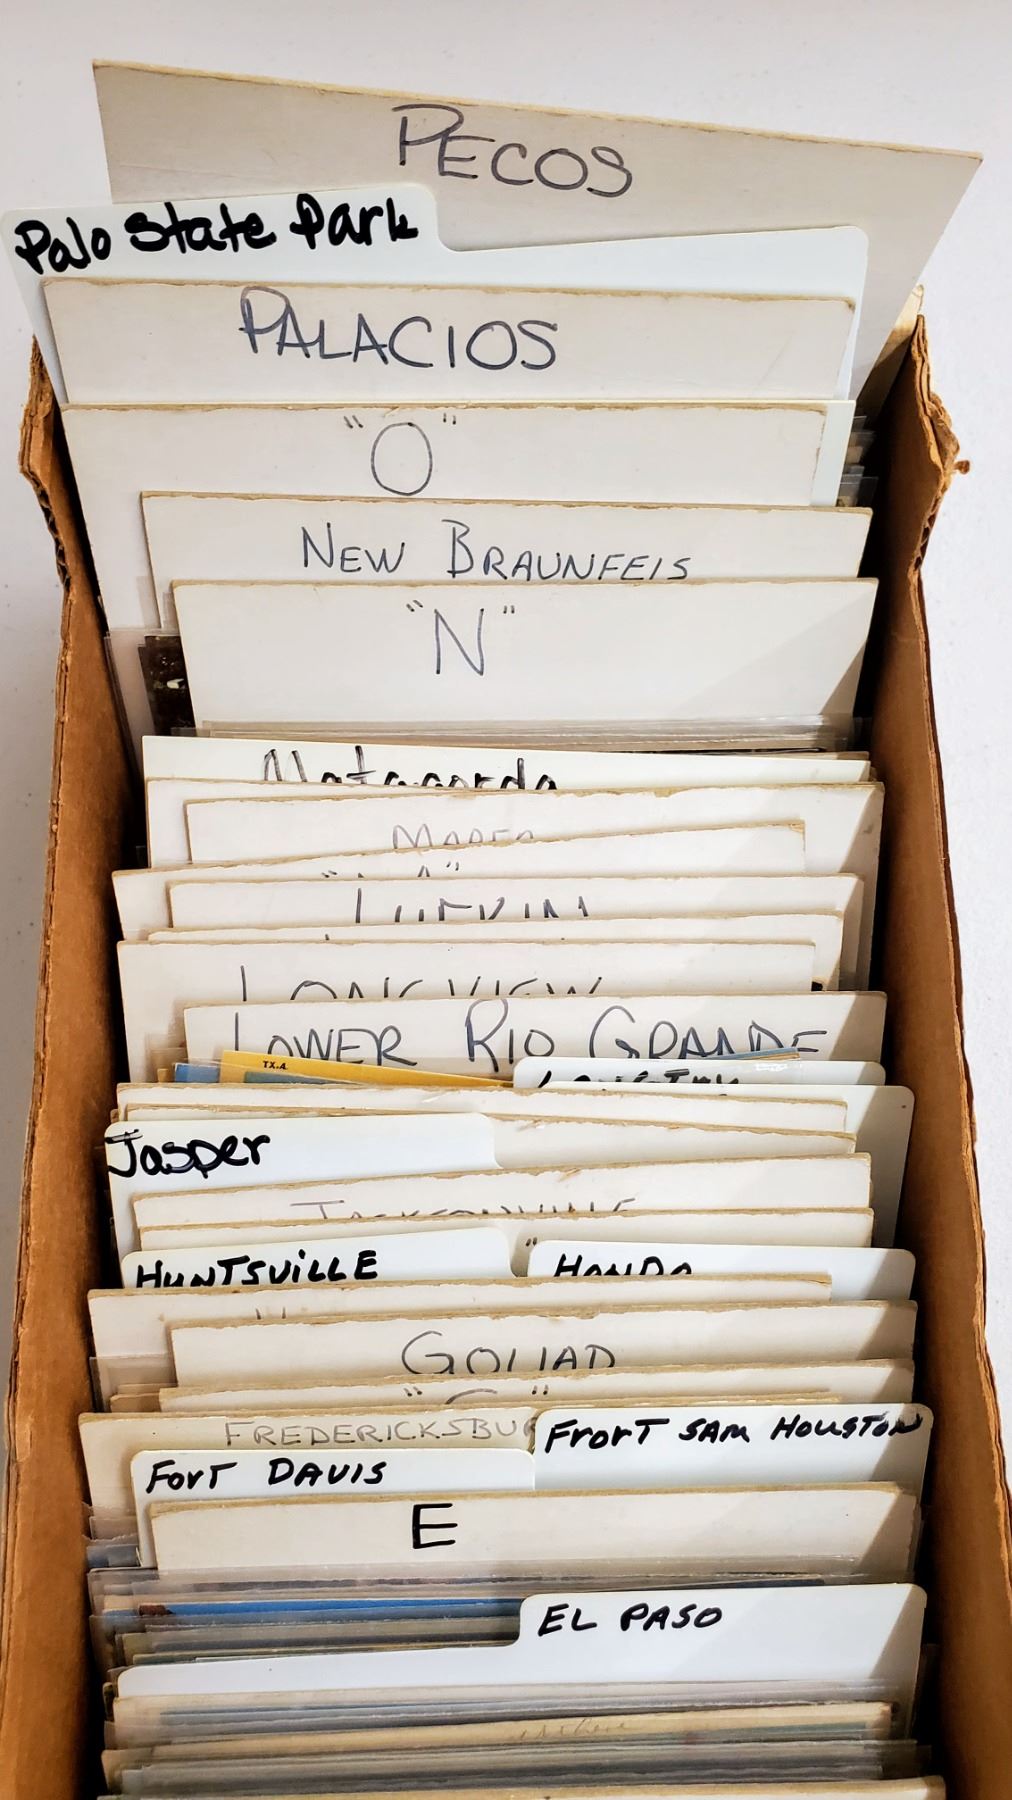 PECOS
Palo State Park
PALACIOS
"O"
NEW BRAUNFEIS
"N"
Matagorda
MARFA
LUFKIN
LONGVIEW
LOWER RIO GRANDE
TX.A
LANGTRY
Jasper
JACKSONVILLE
HUNTSVILLE
HONDO
GOLIAD
"G"
FREDERICKSBU
FrorT SAM HOUSTON
FOrT DAVIS
E
EL PASO